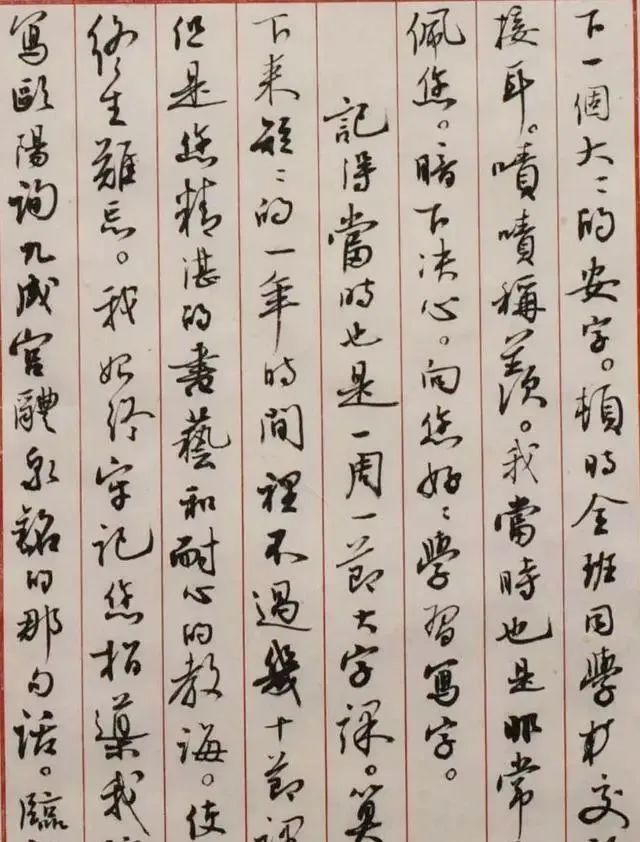 下一個大〻的安字。頓時全班同學交
接耳。嘖嘖稱羨。我當時也是非常
佩您。暗下决心。向您好〻學習寫字。
記得當時也是一周一節大字課。算
下來短〻的一年時間裡不過幾十節課
但是您精湛的書藝和耐心的教誨。使
終生難忘。我始終牢記您指導我
寫歐陽詢九成宮醴泉銘的那句話。臨